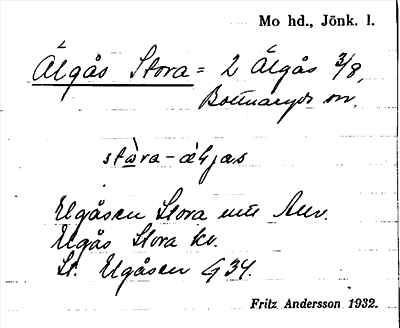 Mo hd., Jönk. l.
Älgås Stora = 2 Älgås 3/8,
Bottnaryds sn.
stωra-älgas
Elgåsen Stora Anv.
Elgås Stora kv.
St. Elgåsen G34.
Fritz Andersson 1932.